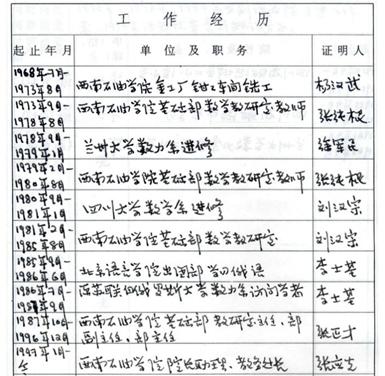 工作经历
起止年月 单位及职务 证明人
1968年7月-
1973年8月 西南石油学院 工厂钳工车间钳工 杨汉武
1973年9月-
1978年8月 西南石油学院基础部数学教研室教师
1978年9月-
1979年1月 兰州大学数力系进修
1979年2月-
1980年8月 西南石油学院基础部数学教研室教师
1980年9月-
1981年1月 四川大学数学系进修 刘汉宗
1981年2月-
1985年8月 西南石油学院基础部数学教研室 刘汉宗
1985年9月-
1986年6月 北京语言学院出国部学习俄语 李士奎
1986年7月-
9月 苏联 大学数力系访问学者 李士奎
1987年10月- 西南石油学院基础部教研室主任、部
1996年12月 副主任、部主任 张正才
1997年1月-
今 西南石油学院院长助理、教务处长